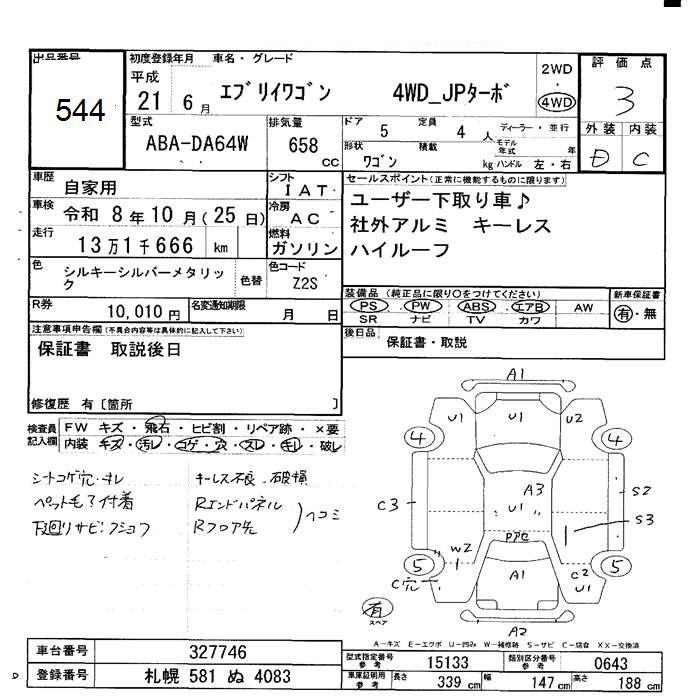 出品番号
544
初度登録年月 車名・グレード
平成 21 6月 エブリイワゴン 4WD_JPターボ
2WD
・
4WD
評価点
3
外装 内装
D C
型式
ABA-DA64W
排気量
658 cc
ドア 5 定員 4 人 ディーラー・並行
形状 ワゴン 積載 kg モデル年式 年
ハンドル 左・右
車歴 自家用
シフト IAT
車検 令和 8年10月(25日)
冷房 AC
走行 13万1千666 km
燃料 ガソリン
色 シルキーシルバーメタリック 色替
色コード Z2S
R券 10,010円 名変通知期限 月 日
セールスポイント(正常に機能するものに限ります)
ユーザー下取り車♪
社外アルミ キーレス
ハイルーフ
装備品(純正品に限り○をつけてください)
PS・PW・ABS・エアB・AW
SR ナビ TV カワ
新車保証書
有・無
後日品 保証書・取説
注意事項申告欄(不具合内容等は具体的に記入して下さい)
保証書 取説後日
修復歴 有〔箇所 〕
検査員記入欄
FW キズ・飛石・ヒビ割・リペア跡・×要
内装 キズ・汚レ・コゲ・穴・スレ・キレ・破レ
シートコゲ穴・キレ
ペット毛?付着
下回りサビ
キーレス不良・破損
Rエンドパネル
Rフロア先
ヘコミ
A1
U1 U1 U2
4 4
C3 A3 U1 S2
S3
W2 アセ
5 5
C穴 A1 C2 U1
有
スペア
A2
A-キズ E-エクボ U-凹み W-補修跡 S-サビ C-腐食 XX-交換済
車台番号 327746
登録番号 札幌 581 ぬ 4083
型式指定番号 参考 15133 類別区分番号 参考 0643
車庫証明用 参考 長さ 339 cm 幅 147 cm 高さ 188 cm